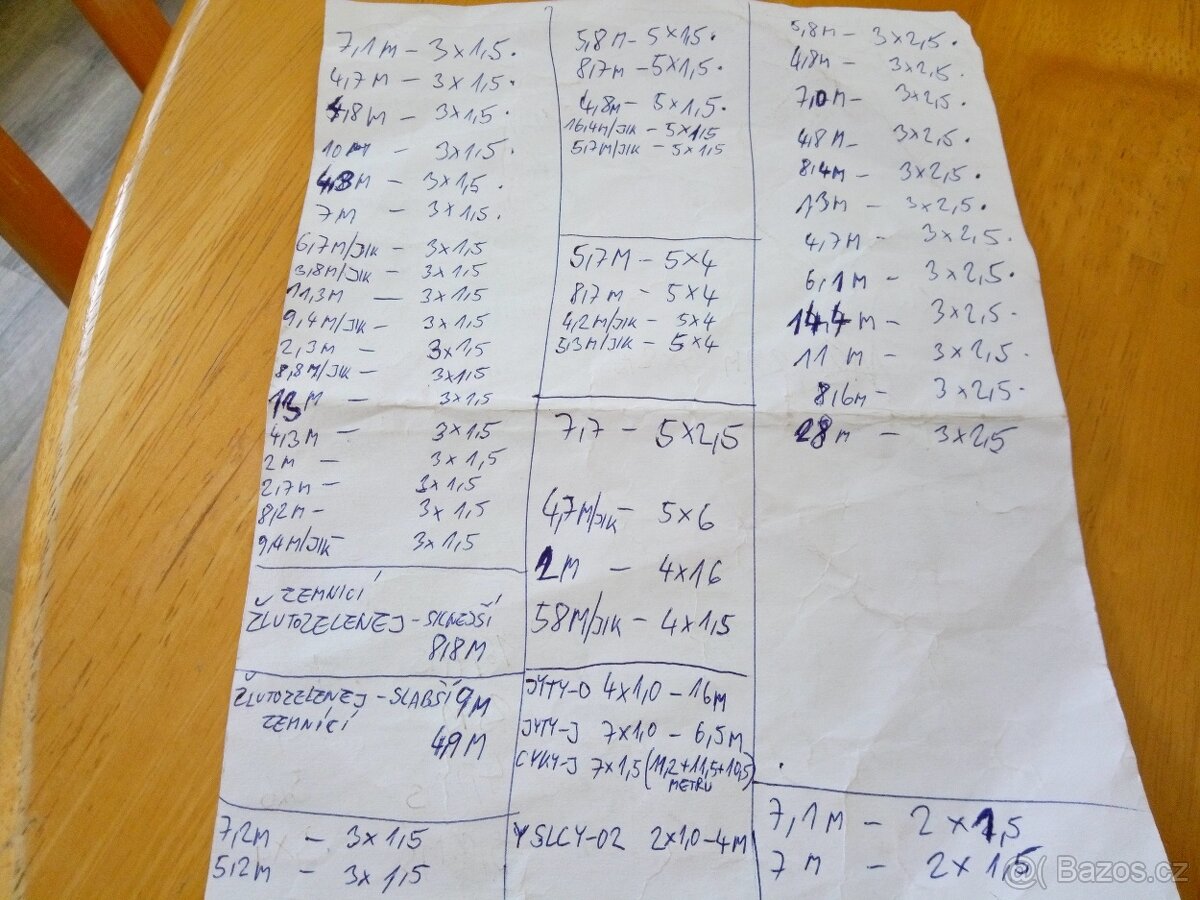 7,1M - 3x1,5.
4,7M - 3x1,5.
4,8M - 3x1,5.
10M - 3x1,5.
4,8M - 3x1,5.
7M - 3x1,5.
6,7M/JIK - 3x1,5
3,8M/JIK - 3x1,5
11,3M - 3x1,5
9,4M/JIK - 3x1,5
2,3M - 3x1,5
8,8M/JIK - 3x1,5
13M - 3x1,5
4,3M - 3x1,5
2M - 3x1,5
2,7M - 3x1,5
8,2M - 3x1,5
9,4M/JIK - 3x1,5
ZEMNICÍ
ŽLUTOZELENEJ - SILNEJŠÍ
8,8M
ŽLUTOZELENEJ - SLABŠÍ 9M
ZEMNÍCÍ
4,9M
7,2M - 3x1,5
5,2M - 3x1,5
5,8M - 5x1,5.
8,7M - 5x1,5.
4,8M - 5x1,5.
16,4M/JIK - 5x1,5
5,7M/JIK - 5x1,5
5,7M - 5x4
8,7M - 5x4
4,2M/JIK - 5x4
5,3M/JIK - 5x4
7,7 - 5x2,5
4,7M/JIK - 5x6
2M - 4x16
58M/JIK - 4x1,5
JYTY-O 4x1,0 - 16M
JYTY-J 7x1,0 - 6,5M
CYKY-J 7x1,5 (11,2+11,5+10,5)
METRU
YSLCY-OZ 2x1,0 - 4M
5,8M - 3x2,5.
4,8M - 3x2,5.
7,0M - 3x2,5.
4,8M - 3x2,5.
8,4M - 3x2,5.
13M - 3x2,5.
4,7M - 3x2,5.
6,1M - 3x2,5.
14,4M - 3x2,5.
11M - 3x2,5.
8,6M - 3x2,5.
28M - 3x2,5
7,1M - 2x1,5
7M - 2x1,5
Bazos.cz